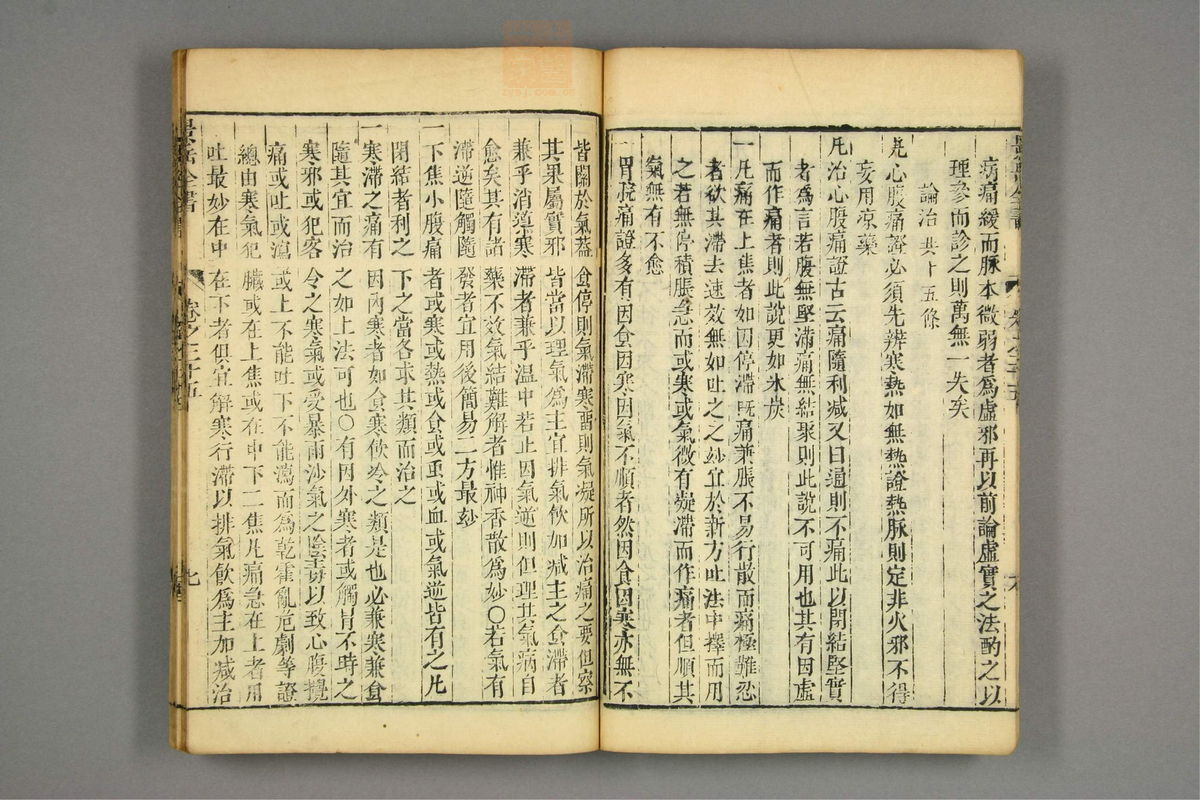 病痛緩而脉本微弱者為虚邪再以前論虚實之法酌之以
理參而診之則萬無一失矣
論治共十五條
凡心腹痛證必須先辨寒熱如無熱證熱脉則定非火邪不得
妄用凉藥
凡治心腹痛證古云痛隨利减又曰通則不痛此以閉結堅實
者為言若腹無堅滿痛無結聚則此說不可用也其有因虚
而作痛者則此說更如氷炭
一凡痛在上焦者如因停滯既痛兼脹不易行散而痛極難忍
者欲其滯去速效無如吐之之妙宜於新方吐法中擇而用
之若無停積脹急而或寒或氣微有凝滯而作痛者但順其
氣無有不愈
一胃脘痛證多有因食因寒因氣不順者然因食因寒亦無不
皆關於氣葢食停則氣滯寒畱則氣凝所以治痛之要但察
其果屬實邪皆當以理氣為主宜排氣飲加减主之食滯者
兼乎消導寒滯者兼乎温中若止因氣逆則但理其氣病自
愈矣其有諸藥不效氣結難解者惟神香散為妙○若氣有
滯逆隨觸隨發者宜用後簡易二方最妙
一下焦小腹痛者或寒或熱或食或虫或血或氣逆皆有之凡
閉結者利之下之當各求其類而治之
一寒滯之痛有因内寒者如食寒飲冷之類是也必兼寒兼食
隨其宜而治之如上法可也○有因外寒者或觸冒不時之
寒邪或犯客令之寒氣或受暴雨沙氣之陰毒以致心腹攪
痛或吐或瀉或上不能吐下不能瀉而為乾霍亂危劇等證
總由寒氣犯臟或在上焦或在中下二焦凡痛急在上者用
吐最妙在中在下者俱宜解寒行滯以排氣飲為主加减治
景岳全書
卷之二十五